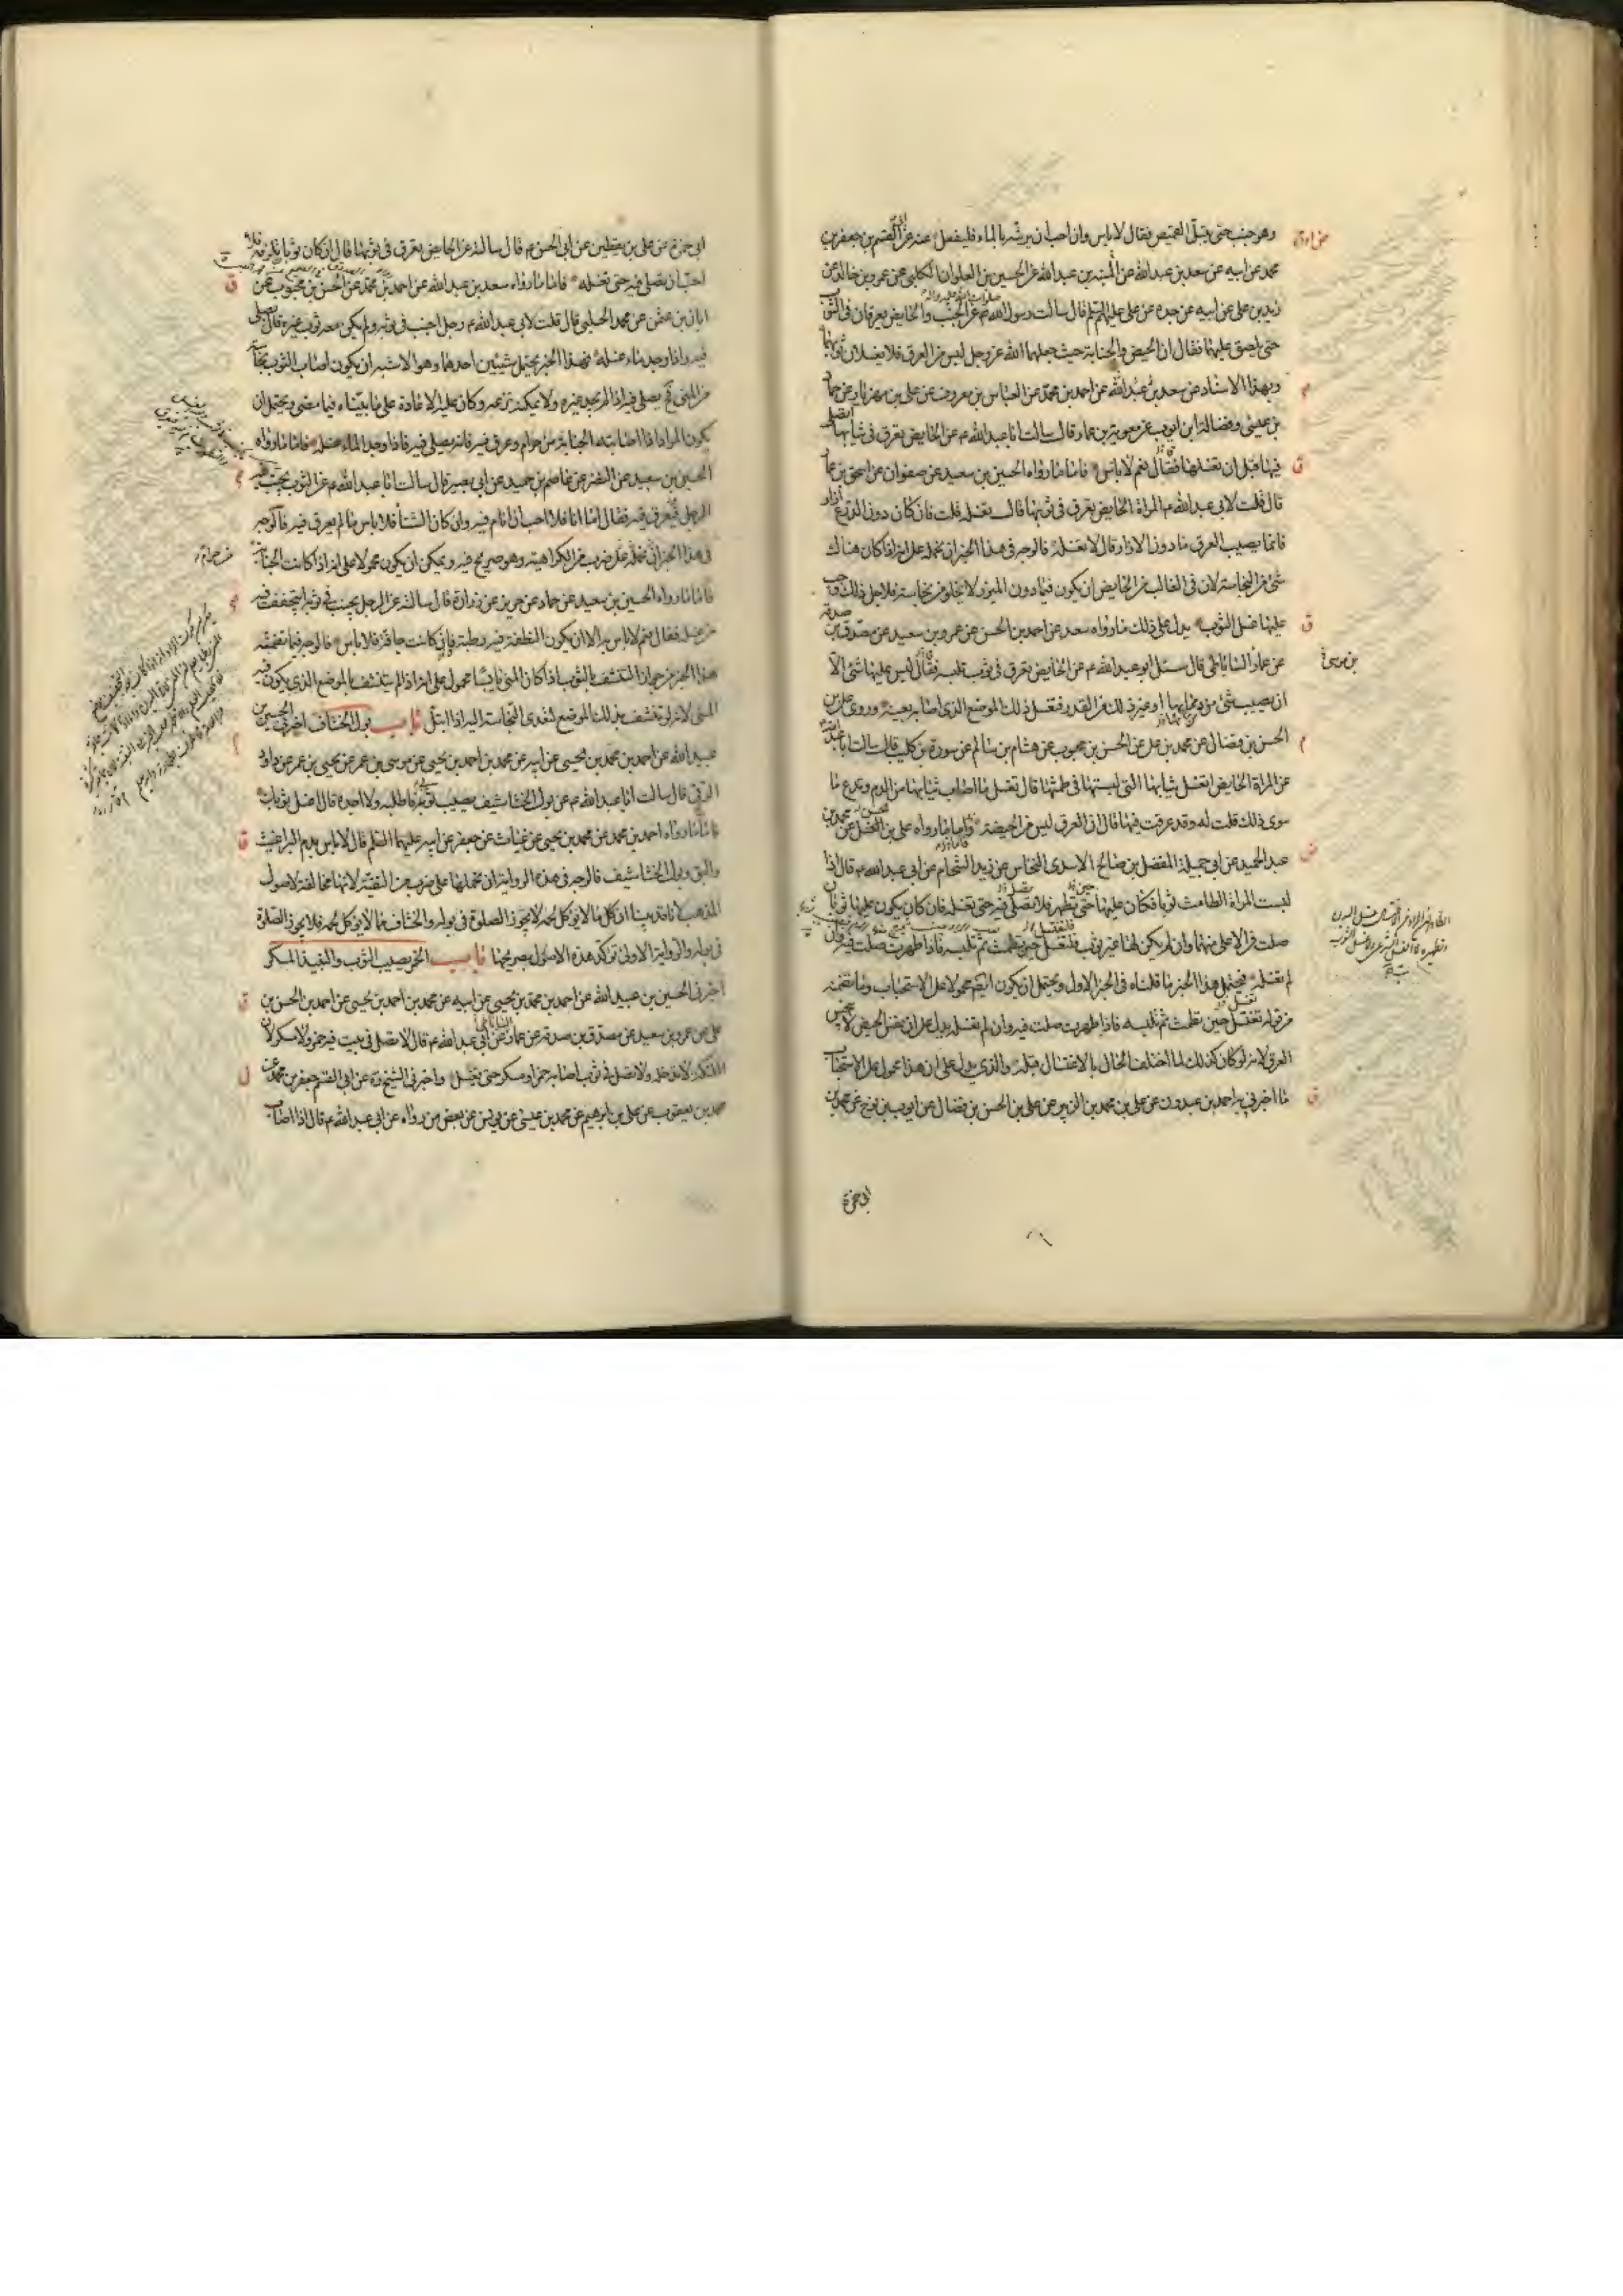 وهو جنب حتى يبتل القميص فقال لا باس وان احب ان يرشه بالماء فليفعل عنه عن ابى القسم جعفر بن
محمد عن ابيه عن سعد بن عبد الله عن المنبه بن عبد الله عن الحسين بن العلوان الكلبى عن عمرو بن خالد عن
زيد بن على عن ابيه عن جده عن على عليهم السلم قال سالت رسول الله عن الجنب والحايض يعرقان فى الثوب
حتى يلصق عليهما فقال ان الحيض والجنابة حيث جعلهما الله عز وجل ليس من العرق فلا يغسلان ثوبهما
وبهذا الاسناد عن سعد بن عبد الله عن احمد بن محمد عن العباس بن معروف عن على بن مهزيار عن حماد
بن عيسى وفضالة ابن ايوب عن معوية بن عمار قال سالت ابا عبد الله ع عن الحايض تعرق فى ثيابها اتصلى
فيها قبل ان تغسلها فقال نعم لا باس فاما ما رواه الحسين بن سعيد عن صفوان عن اسحق بن عمار
قال قلت لابى عبد الله ع المراة الحايض تعرق فى ثوبها قال تغسله قلت فان كان دون الدرع ازار
فانما يصيب العرق ما دون الازار قال لا تغسله فالوجه فى هذا الخبر ان نحمله على انه اذا كان هناك
شئ من النجاسة لان فى الغالب من الحايض ان يكون فيما دون الميزر لا يخلو من نجاسة فلاجل ذلك وجب
عليها غسل الثوب يدل على ذلك ما رواه سعد عن احمد بن الحسن عن عمرو بن سعيد عن مصدق بن صدقة
عن عمار الساباطى قال سئل ابو عبد الله ع عن الحايض تعرق فى ثوب تلبسه فقال ليس عليها شئ الا
ان يصيب شئ من دمها او غير ذلك من القذر فتغسل ذلك الموضع الذى اصابه بعينه وروى على بن
الحسن بن فضال عن محمد بن على عن الحسن بن محبوب عن هشام بن سالم عن سورة بن كليب قال سالت ابا عبد الله
عن المراة الحايض اتغسل ثيابها التى لبستها فى طمثها قال تغسل ما اصاب ثيابها من الدم وتدع ما
سوى ذلك قلت له وقد عرقت فيها قال ان العرق ليس من الحيضة واما ما رواه على بن الحسن عن محمد بن
عبد الحميد عن ابى جميلة المفضل بن صالح الاسدى النحاس عن زيد الشحام عن ابى عبد الله ع قال اذا
لبست المراة الطامث ثوبا فكان عليها حتى تطهر فلا تصلى فيه حتى تغسله فان كان يكون عليها ثوبان
صلت فى الاعلى منهما وان لم يكن لها غير ثوب فلتغسل حين تطمث ثم تلبسه فاذا طهرت صلت فيه وان
لم تغسله فيحتمل هذا الخبر ما قلناه فى الخبر الاول ويحتمل ان يكون ايضا محمولا على الاستحباب وما تضمنه
من قوله تغتسل حين تطمث ثم تلبسه فاذا طهرت صلت فيه وان لم تغسله يدل على ان نفس الحيض لا ينجس
العرق لانه لو كان كذلك لما اختلفت الحال بالاغتسال قبله والذى يدل على ان هذا محمول على الاستحباب
ما اخبرنى به احمد بن عبدون عن على بن محمد بن الزبير عن على بن الحسن بن فضال عن ايوب بن نوح عن محمد بن
ابى حمزة
ابى حمزة عن على بن يقطين عن ابى الحسن ع قال سالته عن الحايض تعرق فى ثوبها قال ان كان ثوبا تلزمه فلا
احب ان تصلى فيه حتى تغسله فاما ما رواه سعد بن عبد الله عن احمد بن محمد عن الحسن بن محبوب عن
ابان بن عثمن عن محمد الحلبى قال قلت لابى عبد الله ع رجل اجنب فى ثوبه ولم يكن معه ثوب غيره قال يصلى
فيه واذا وجد ماء غسله فهذا الخبر يحتمل شيئين احدهما وهو الاشبه ان يكون اصاب الثوب نجاسة
من المنى فح يصلى فيه اذا لم يجد غيره ولا يمكنه نزعه وكان عليه الاعادة على ما بيناه فيما مضى ويحتمل ان
يكون المراد اذا اصابته الجنابة من حرام وعرق فيه فانه يصلى فيه فاذا وجد الماء غسله فاما ما رواه
الحسين بن سعيد عن النضر عن عاصم بن حميد عن ابى بصير قال سالت ابا عبد الله ع عن الثوب يجنب فيه
الرجل ويعرق فيه فقال اما انا فلا احب ان انام فيه وان كان الشتاء فلا باس ما لم يعرق فيه فالوجه
فى هذا الخبر ان نحمله على ضرب من الكراهية وهو صريح فيه ويمكن ان يكون محمولا على انه اذا كانت الجنابة
فاما ما رواه الحسين بن سعيد عن حماد عن حريز عن زرارة قال سالته عن الرجل يجنب فى ثوبه ايتجفف فيه
من غسله فقال نعم لا باس به الا ان يكون النطفة فيه رطبة فان كانت جافة فلا باس فالوجه فيما تضمنه
هذا الخبر من جواز التنشف بالثوب اذا كان المنى يابسا محمول على انه اذا لم يتنشف بالموضع الذى يكون فيه
المنى لانه لو تنشف بذلك الموضع لتعدى النجاسة اليه اذا ابتل باب بول الخشاف اخبرنى الحسين بن
عبيد الله عن احمد بن محمد بن يحيى عن ابيه عن محمد بن احمد بن يحيى عن موسى بن عمر عن يحيى بن عمر عن داود
الرقى قال سالت ابا عبد الله ع عن بول الخشاشيف يصيب ثوبى فاطلبه ولا اجده قال اغسل ثوبك
فاما ما رواه احمد بن محمد عن محمد بن يحيى عن غياث عن جعفر عن ابيه عليهما السلم قال لا باس بدم البراغيث
والبق وبول الخشاشيف فالوجه فى هذه الرواية ان نحملها على ضرب من التقية لانها مخالفة لاصول
المذهب لانا قد بينا ان كل ما لا يؤكل لحمه لا يجوز الصلوة فى بوله والخشاف مما لا يؤكل لحمه فلا يجوز الصلوة
فى بوله والرواية الاولى تؤكد هذه الاصول بصريحها باب الخمر يصيب الثوب والنبيذ المسكر
اخبرنى الحسين بن عبيد الله عن احمد بن محمد بن يحيى عن ابيه عن محمد بن احمد بن يحيى عن احمد بن الحسن بن
على عن عمرو بن سعيد عن مصدق بن صدقة عن عمار الساباطى عن ابى عبد الله ع قال لا تصل فى بيت فيه خمر ولا مسكر لان
الملئكة لا تدخله ولا تصل فى ثوب اصابه خمر او مسكر حتى يغسل واخبرنى الشيخ ره عن ابى القسم جعفر بن محمد عن
محمد بن يعقوب عن على بن ابرهيم عن محمد بن عيسى عن يونس عن بعض من رواه عن ابى عبد الله ع قال اذا اصاب